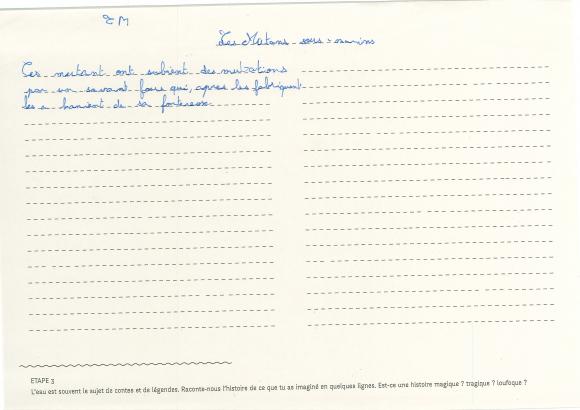 EM
Les Mutans sous-marins
Ces mutant ont subient des mutations
par un savant fous qui, apres les fabriquent
les a banient de sa forteresse
ETAPE 3
L'eau est souvent le sujet de contes et de légendes. Raconte-nous l'histoire de ce que tu as imaginé en quelques lignes. Est-ce une histoire magique ? tragique ? loufoque ?